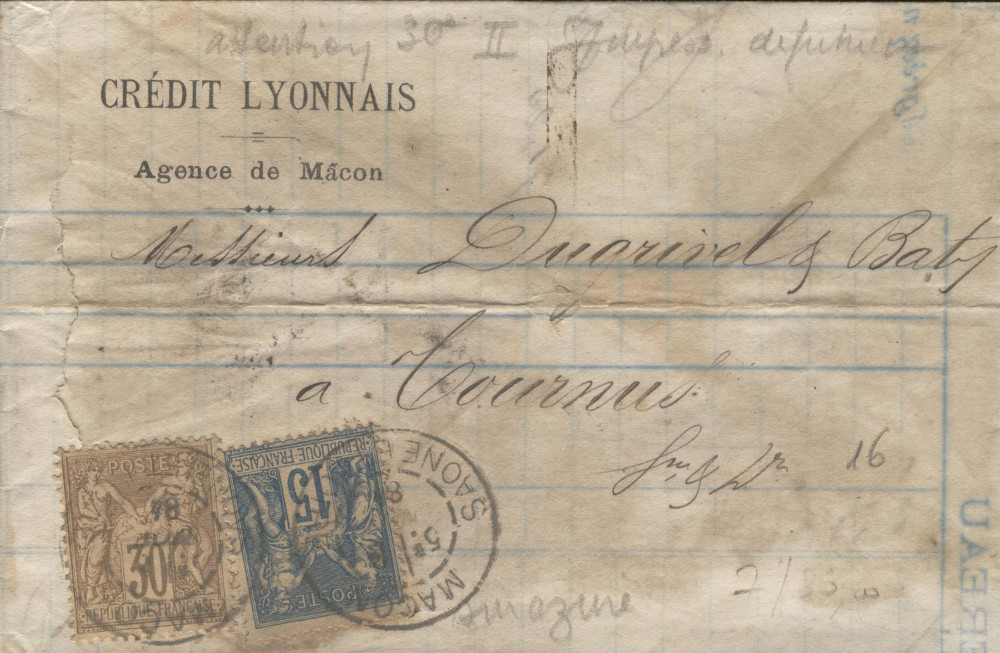 attention 30c II
CRÉDIT LYONNAIS
Agence de Mâcon
Messieurs Dugrivel & Baty
à Tournus
16
POSTES
30
RÉPUBLIQUE FRANÇAISE
RÉPUBLIQUE FRANÇAISE
15
POSTES
MACON
SAONE
7/
EREAU